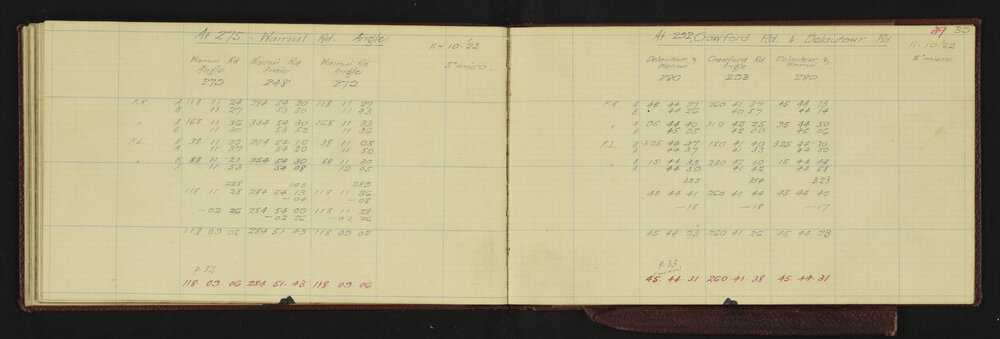 At 275 - Wainui Rd. Angle
11-10-'22
Wainui Rd Wainui Rd Wainui Rd
Angle Angle Angle
279 248 279
5" micro.
F.R. A 118 11 24 284 54 20 118 11 27
B 11 27 53 50 11 43
" A 168 11 36 334 54 30 168 11 33
B 11 30 53 52 11 36
F.L. B 38 11 00 204 54 10 38 11 05
A 11 37 54 20 11 50
" B 88 11 21 254 54 30 88 11 30
A 11 53 54 08 12 05
228 100 289
118 11 28 284 54 13 118 11 36
-04 -08
-02 26 284 54 09 118 11 28
-02 26 -02 26
118 09 02 284 51 43 118 09 02
p. 32
118 . 09 . 06 284 . 51 . 43 118 09 06
39 35
At 292, Crawford Rd & Debutour Rd
11. 10. '22
Debutour & Crawford Rd Debutour &
Wainui Angle Wainui
280 293 280
5" micro
F.R. A 45 44 27 260 41 37 45 44 13
B 44 26 40 57 44 14
" A 95 44 40 310 42 25 95 44 50
B 45 05 42 00 45 06
F.L. B 325 44 47 180 41 40 325 44 30
A 44 37 41 33 44 50
" B 15 44 33 230 42 00 15 44 42
A 44 50 41 42 44 58
325 354 323
45 44 41 260 41 44 45 44 40
-18 -18 -17
45 44 23 260 41 26 45 44 23
p. 33
45 . 44 . 31 260 . 41 . 38 45 . 44 . 31